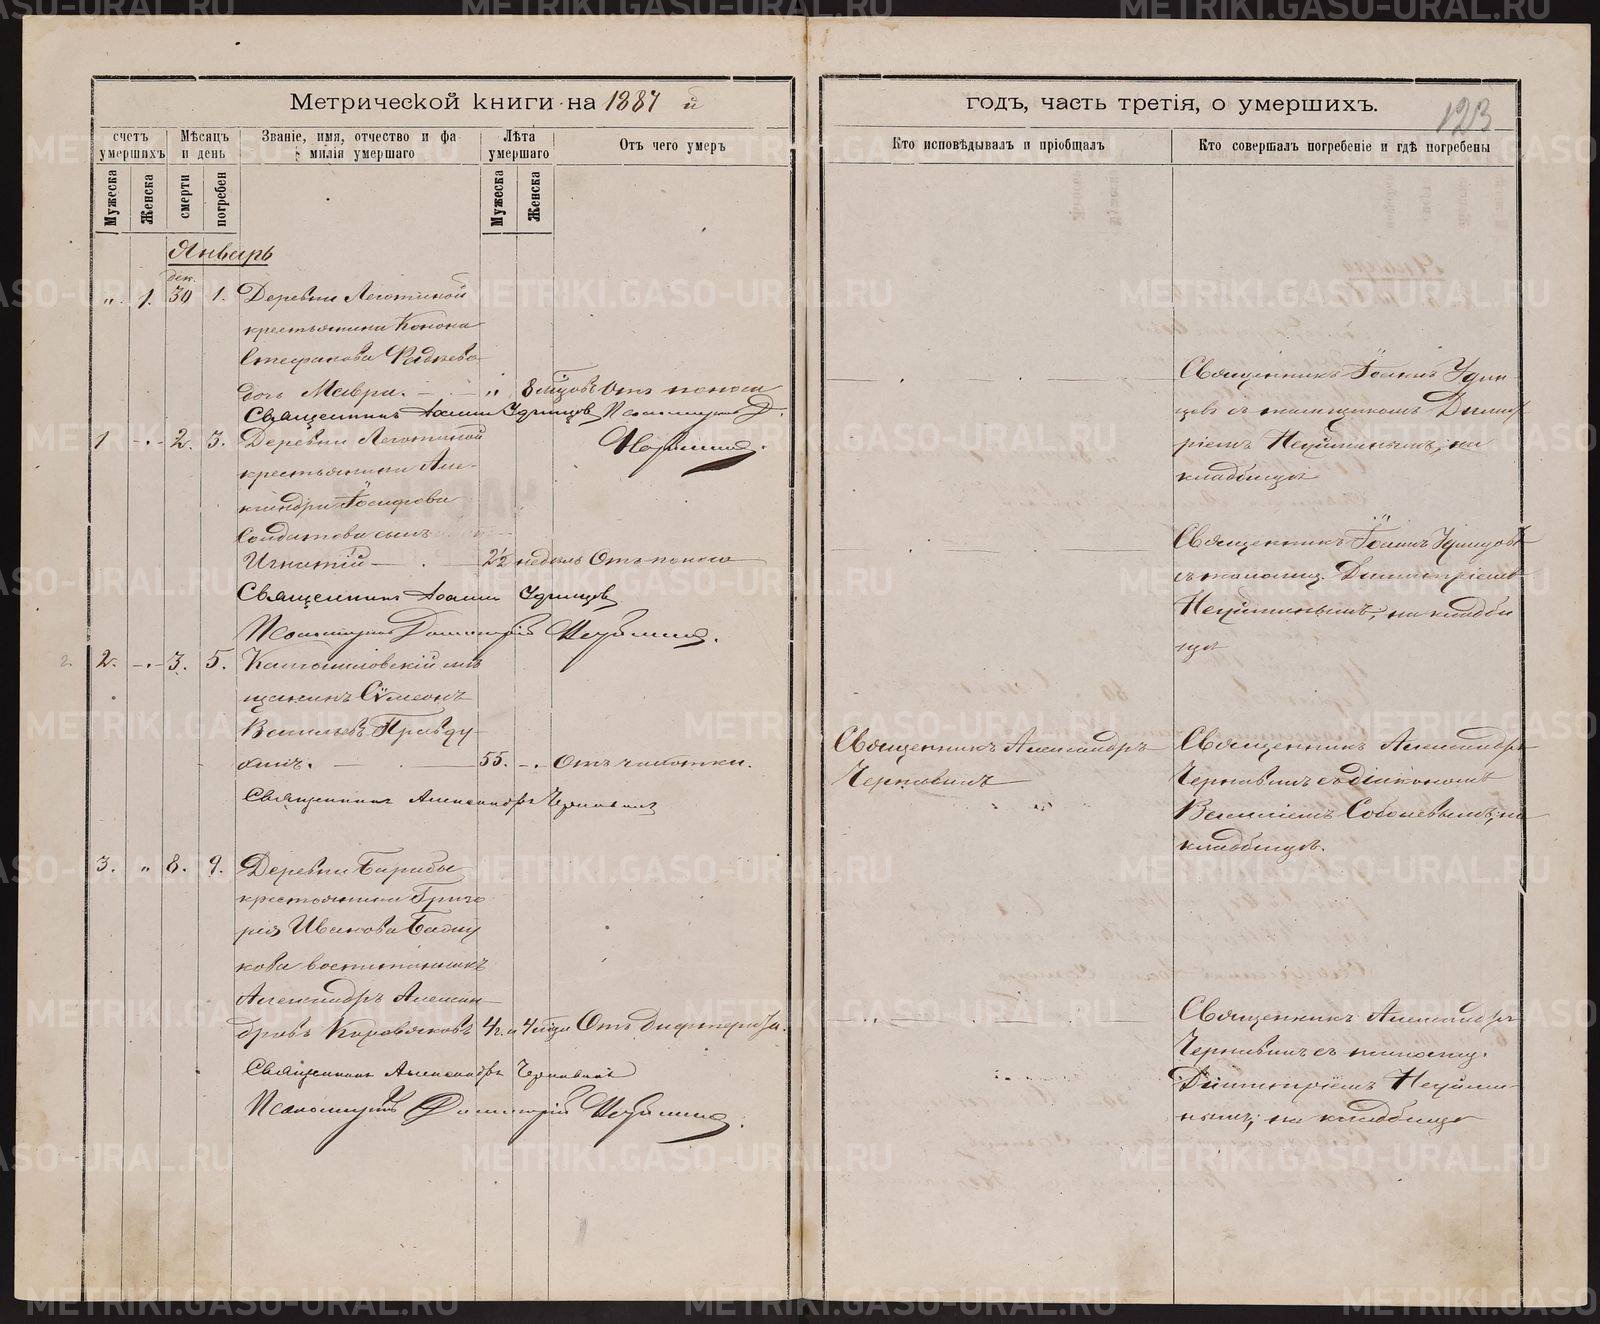 Метрической книги на 1887 й
годъ, часть третія, о умершихъ.
123
счетъ умершихъ
Мѣсяцъ и день
Званіе, имя, отчество и фамилія умершаго
Лѣта умершаго
Отъ чего умеръ
Кто исповѣдывалъ и пріобщалъ
Кто совершалъ погребеніе и гдѣ погребены
Мужеска
Женска
смерти
погребен
Мужеска
Женска
Январь
дек.
" 1. 30 1. Деревни
крестьянина Конона
Стефанова
дочь Мавра. " 8 мѣсяцовъ Отъ поноса
Священникъ Іоаннъ Удинцов Псаломщикъ Д.
Неуймин.
Священникъ Іоаннъ Удин-
цовъ съ псаломщикомъ Димит
ріемъ Неуйминымъ, на
кладбищѣ
1 2. 3. Деревни
крестьянина Алек-
сандра Іосифова
Солдатова сынъ
Игнатій 2½ недель Отъ поноса
Священникъ Іоаннъ Удинцов
Псаломщикъ Димитрій Неуймин.
Священникъ Іоаннъ Удинцовъ
съ псаломщ. Димитріемъ
Неуйминымъ, на кладби
щѣ
2. 3. 5. Камышловскій мѣ
щанинъ Сѵмеонъ
Васильевъ
55. Отъ чахотки.
Священникъ Александръ Чернавин
Священникъ Александръ
Чернавинъ
Священникъ Александръ
Чернавинъ съ діакономъ
Василіемъ Соболевымъ, на
кладбищѣ.
3. " 8. 9. Деревни Барабы
крестьянина Григо
рія Иванова
кова воспитанникъ
Александръ Алексан
дровъ Коровяковъ 4 г. и 4 мѣс. Отъ дифтерита.
Священникъ Александръ Чернавинъ
Псаломщикъ Димитрій Неуймин.
Священникъ Александръ
Чернавинъ съ псаломщ.
Димитріемъ Неуйми-
нымъ, на кладбищѣ
METRIKI.GASO-URAL.RU